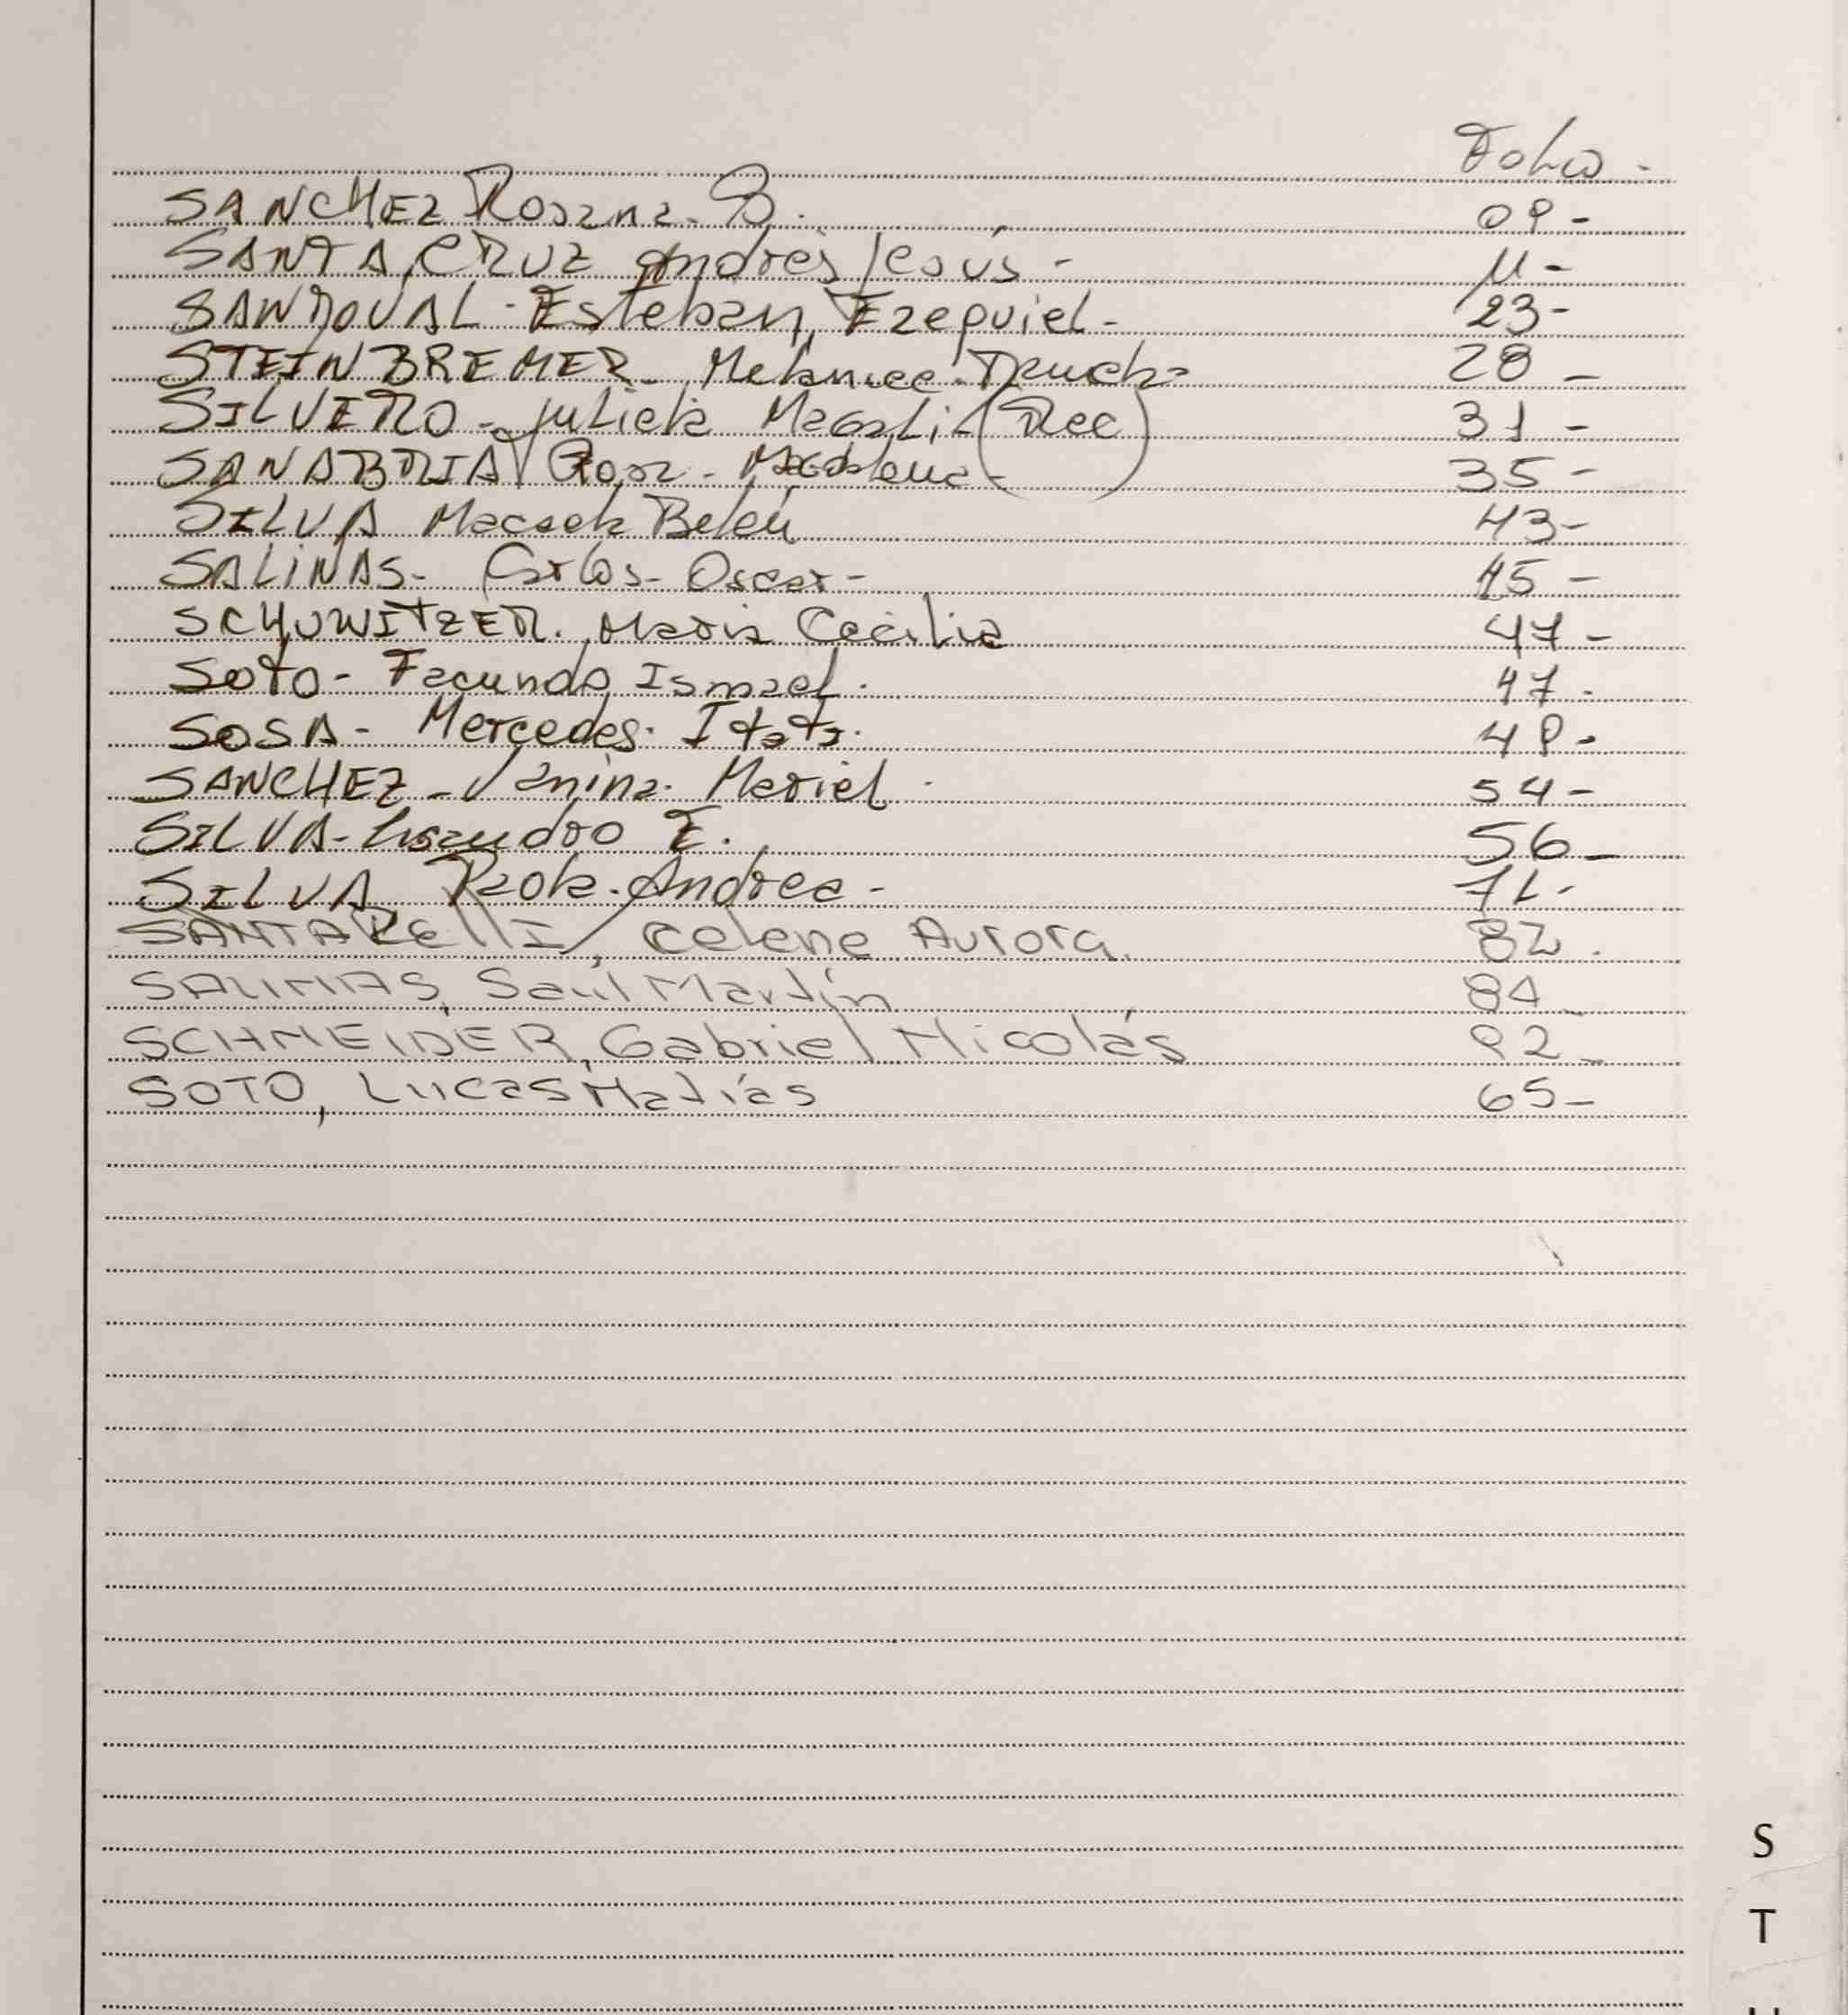 Folio -
SANCHEZ Rosana. B. 09 -
SANTA CRUZ Andrés Jesús - 11 -
SANDOVAL - Esteban Ezequiel - 23 -
STEINBREMER - 28 -
SILVERO - Julieta Magali - (Rec) 31 -
SANABRIA Rosa - Magdalena - 35 -
SILVA Macarena Belén 43 -
SALINAS - Carlos - Oscar - 45 -
SCHUWITZER. María Cecilia 47 -
SOTO - Facundo Ismael. 47 -
SOSA - Mercedes. Itatí. 48 -
SANCHEZ - Vanina. Mariel - 54 -
SILVA - Lisandro E. 56 -
SILVA Paola. Andrea - 71 -
SANTARELLI, Celene Aurora. 82 -
SALINAS, Saúl Martín 84 -
SCHNEIDER, Gabriel Nicolás 92 -
SOTO, Lucas Matías 65 -
S
T